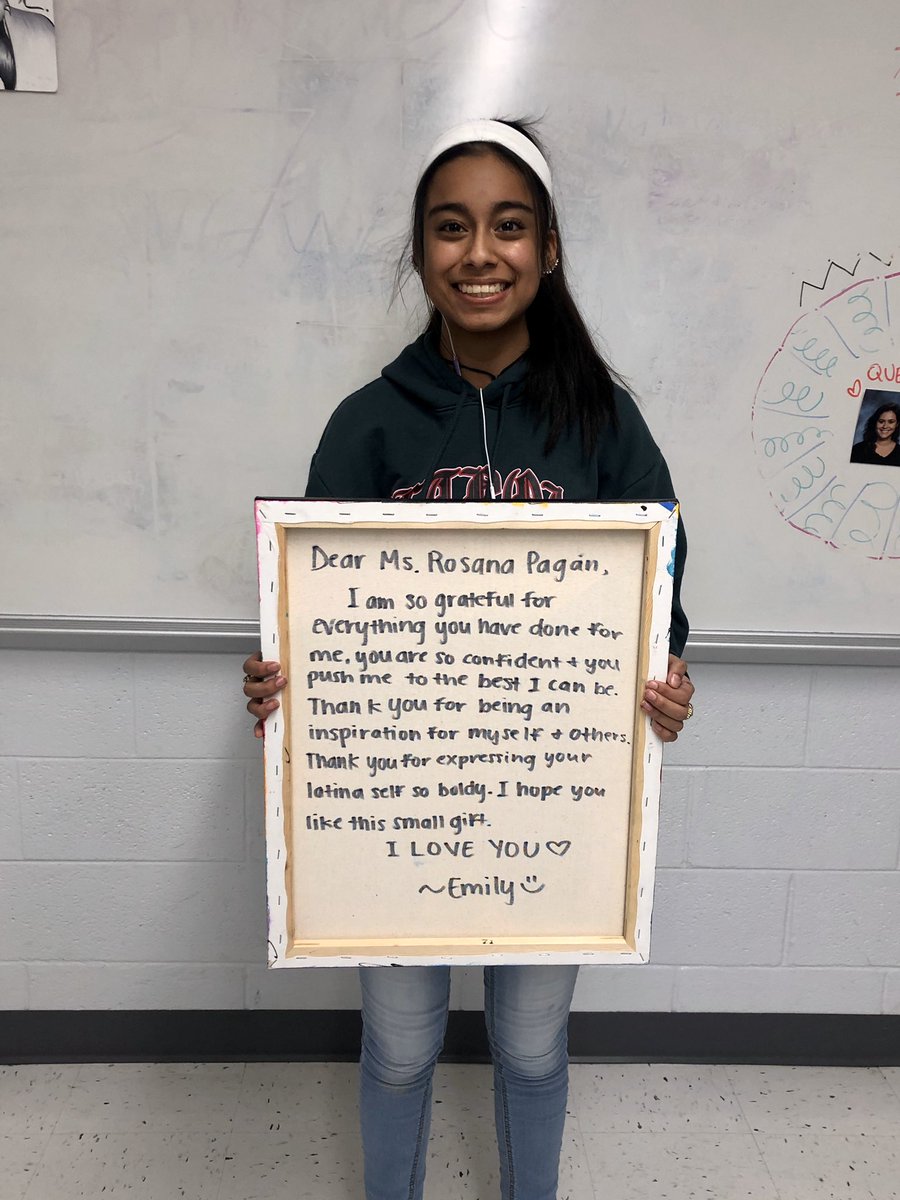 Dear Ms. Rosana Pagán,
I am so grateful for
everything you have done for
me. you are so confident + you
push me to the best I can be.
Thank you for being an
inspiration for myself + others.
Thank you for expressing your
latina self so boldy. I hope you
like this small gift.
I LOVE YOU ♡
~Emily ☺
QUE